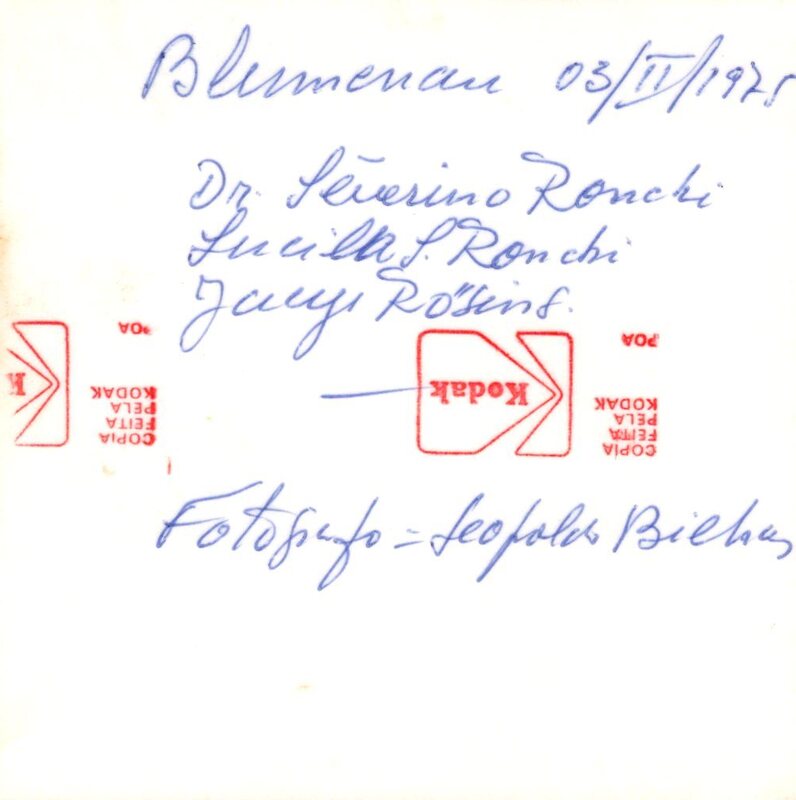 Blumenau 03/II/1975
Dr. Severino Ronchi
Lucilla S. Ronchi
Rösing.
POA
COPIA
FEITA
PELA
KODAK
K
POA
Kodak
COPIA
FEITA
PELA
KODAK
Fotógrafo = Leopoldo